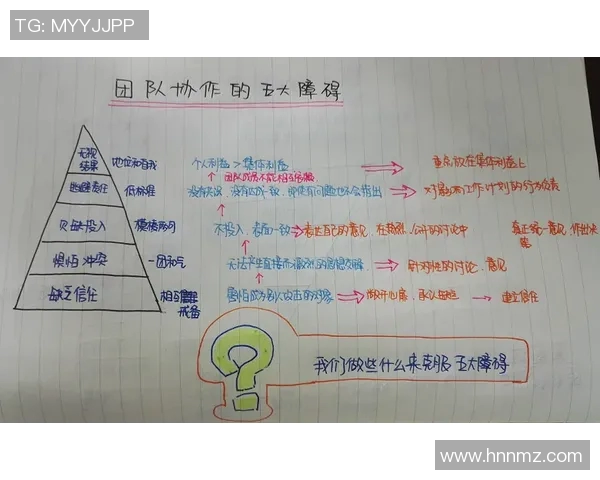 TG: MYYJJPP
团队协作的五大障碍
无视结果 地位和自我 个人利益 > 集体利益 重点放在集体利益上
团队成员不能相互
逃避责任 低标准 没有共识、没有达成一致,即使有问题也不会指出 对影响工作计划的行为负责
欠缺投入 模棱两可 不投入、表面一致 表达自己的意见,在激烈、公开的讨论中 真正统一意见,作出决策
惧怕冲突 一团和气 无法产生直接而激烈的思想交锋 针对性的讨论、意见
缺乏信任 相互戒备 害怕成为别人攻击的对象 敞开心扉,承认缺点 建立信任
我们做些什么来克服五大障碍
www.hnnmz.com